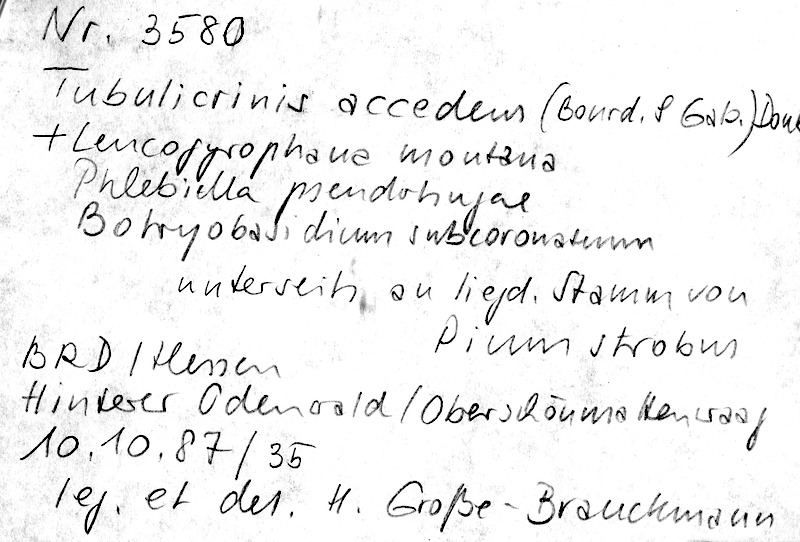 Nr. 3580
Tubulicrinis accedens (Bourd. & Galz.) Donk
+ Leucogyrophana montana
Phlebiella pseudotsugae
Botryobasidium subcoronatum
unterseits an liegd. Stamm von
Pinus strobus
BRD / Hessen
Hinterer Odenwald / Oberschönmattenwaag
10.10.87 / 35
leg. et det. H. Große-Brauckmann